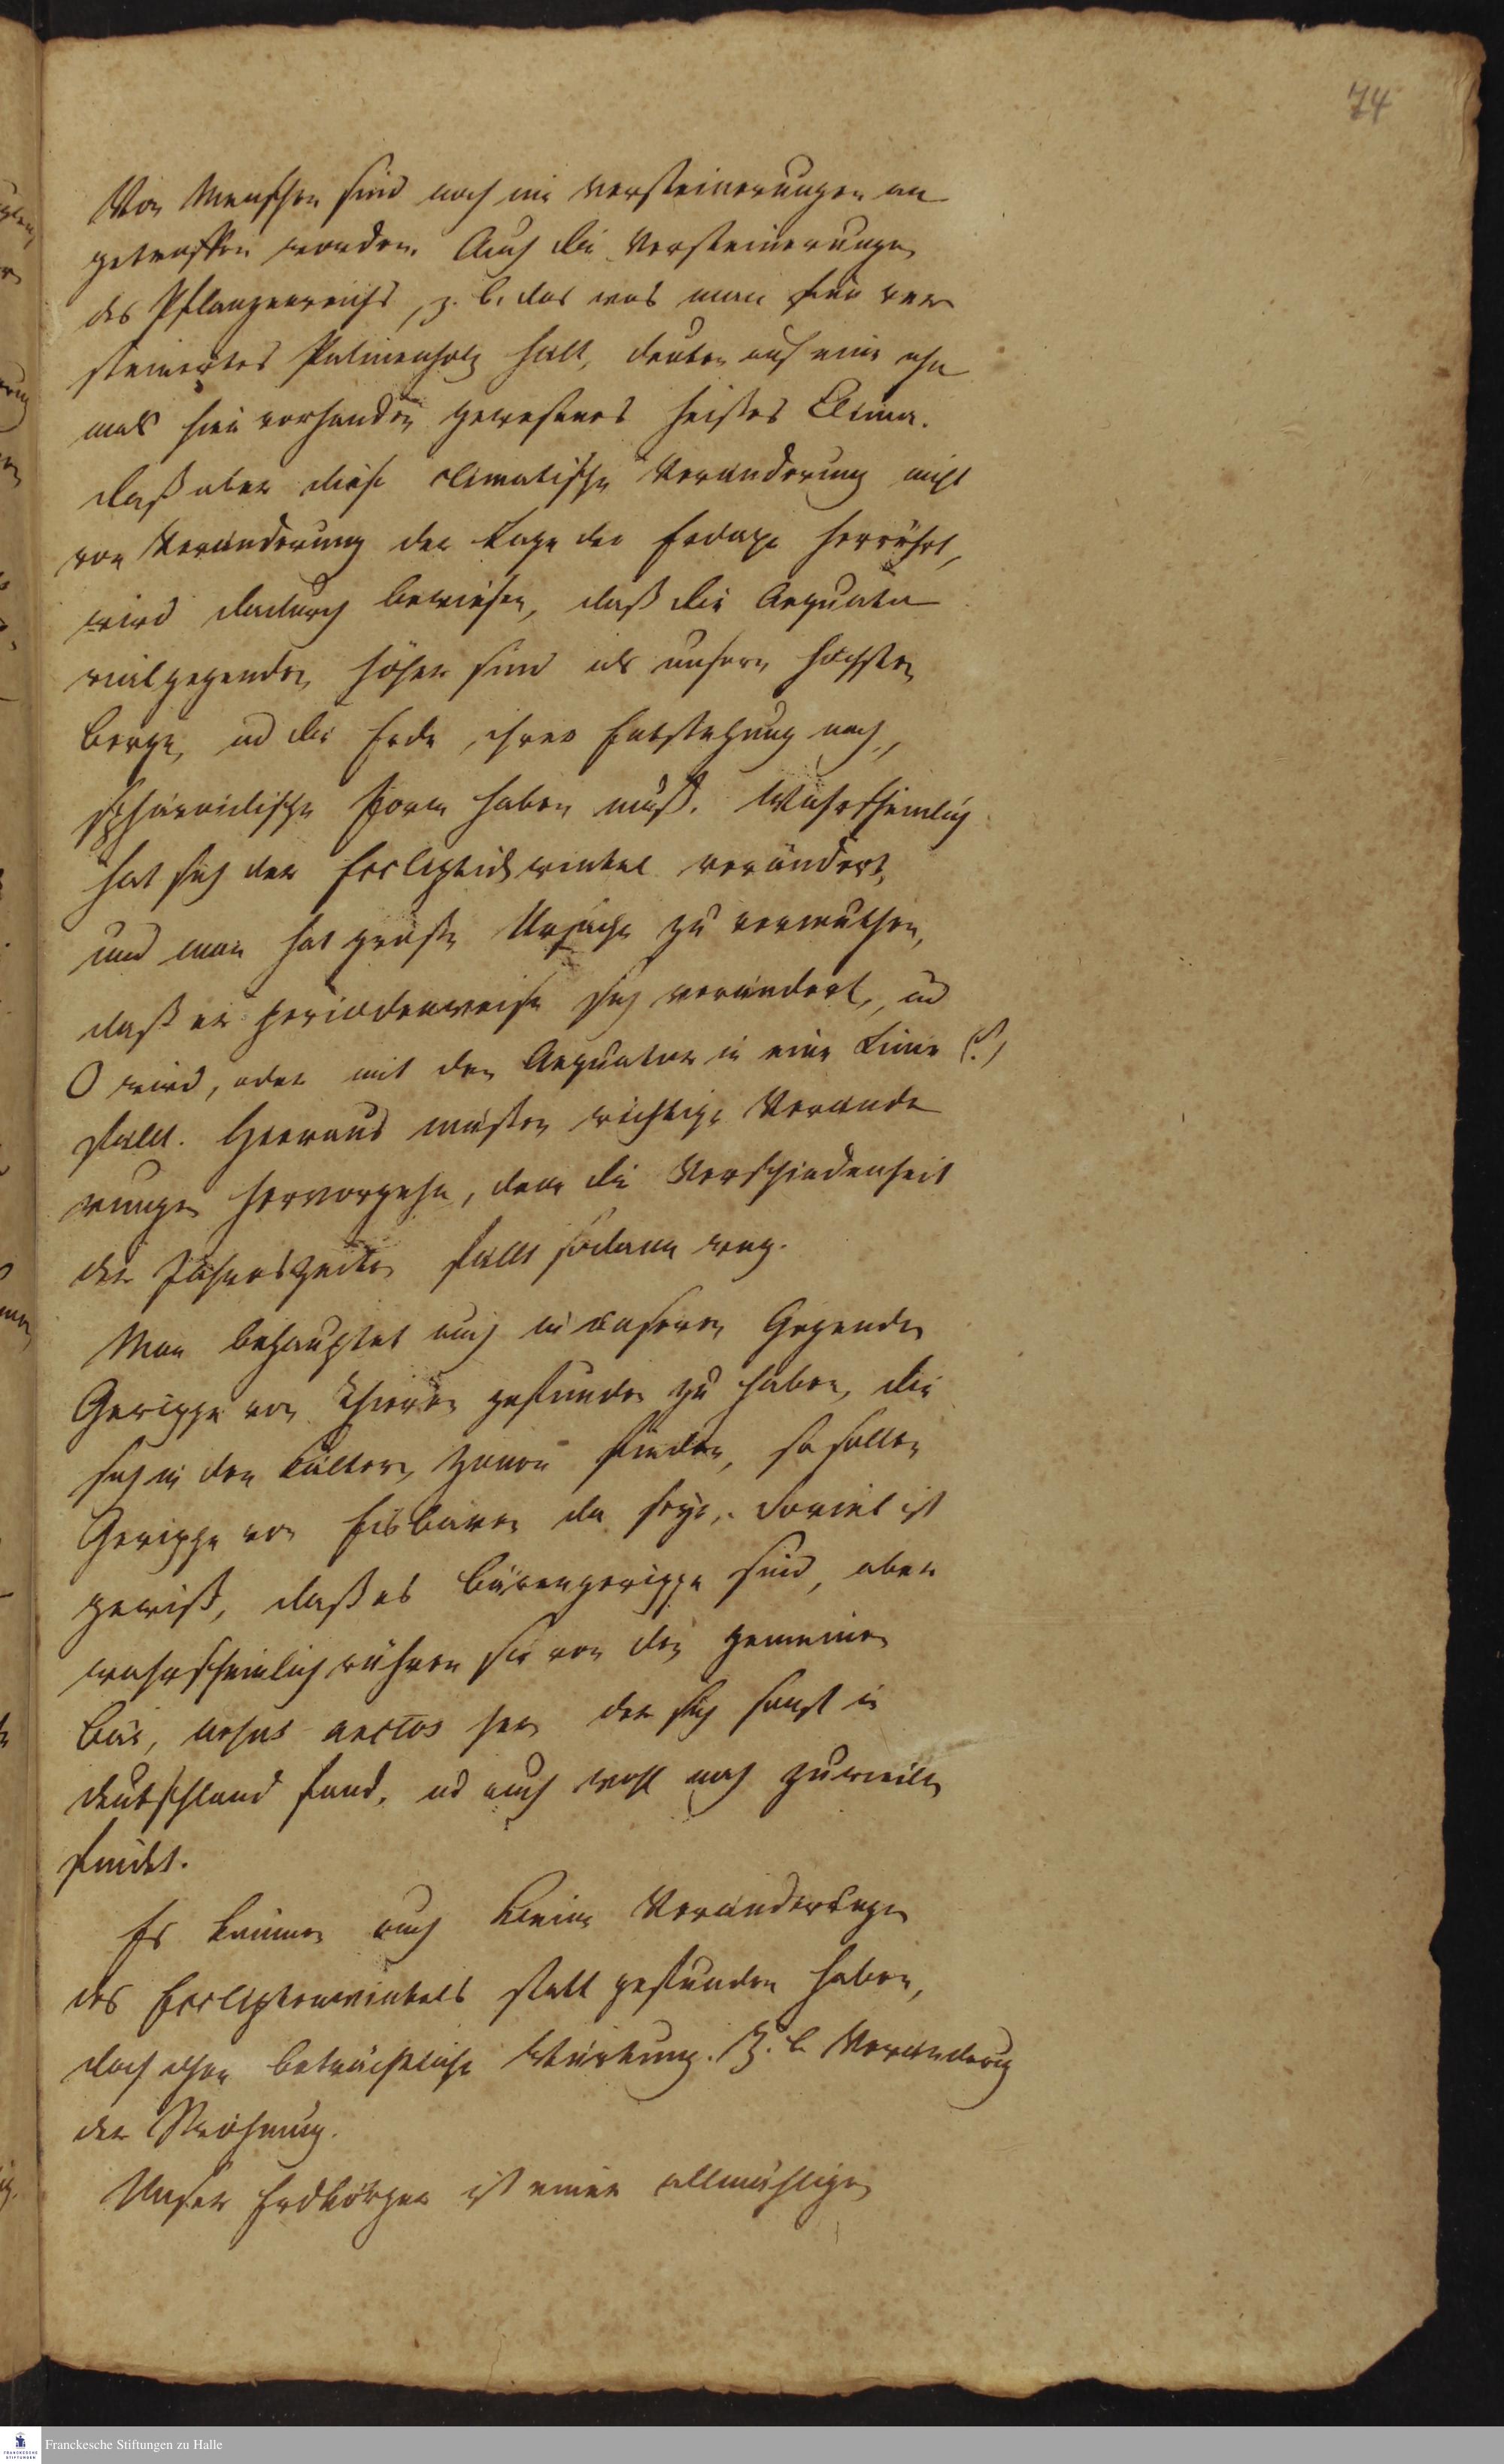 74
Von Menschen sind noch nie Versteinerungen an
getroffen worden. Auch die Versteinerungen
des Pflanzenreichs, z. b. das was man für ver
steinertes Palmenholz hält, deuten auf eine ehe
mals hier vorhanden gewesenes heißes Clima.
daß aber diese climatische Veränderung nicht
von Veränderung der Lage der Erdaxe herrührt,
wird dadurch bewiesen, daß die Aequato
rialgegenden höher sind als unsere höchsten
berge, und die Erde, ihrer Entstehung nach,
sphäroidische Form haben muß. Wahrscheinlich
hat sich der Eccliptickwinkel verändert,
und man hat große Ursache zu vermuthen,
daß er periodenweise sich verändert, und
0 wird, oder mit den Aequator in eine Linie (?)
fällt. Hieraus müßten wichtige Verände
rungen hervorgehn, denn die Verschiedenheit
der Jahreszeiten fällt sodann weg.
Man behauptet auch in unseren Gegenden
Gerippe von Thieren gefunden zu haben, die
sich in den kältern Zonen finden, so sollen
Gerippe von Eisbären da seyn. Soviel ist
gewiß, daß es bärengerippe sind, aber
wahrscheinlich rühren sie von den gemeinen
bär, ursus arctos her, der sich sonst in
deutschland fand, und auch wohl noch zuweilen
findet.
Es können auch kleine Veränderungen
des Eccliptenwinkels statt gefunden haben,
doch ohne beträchtliche Wirkung. Z. b. Veränderung
der Strömung.
Unser Erdkörper ist einer allmähligen
Franckesche Stiftungen zu Halle